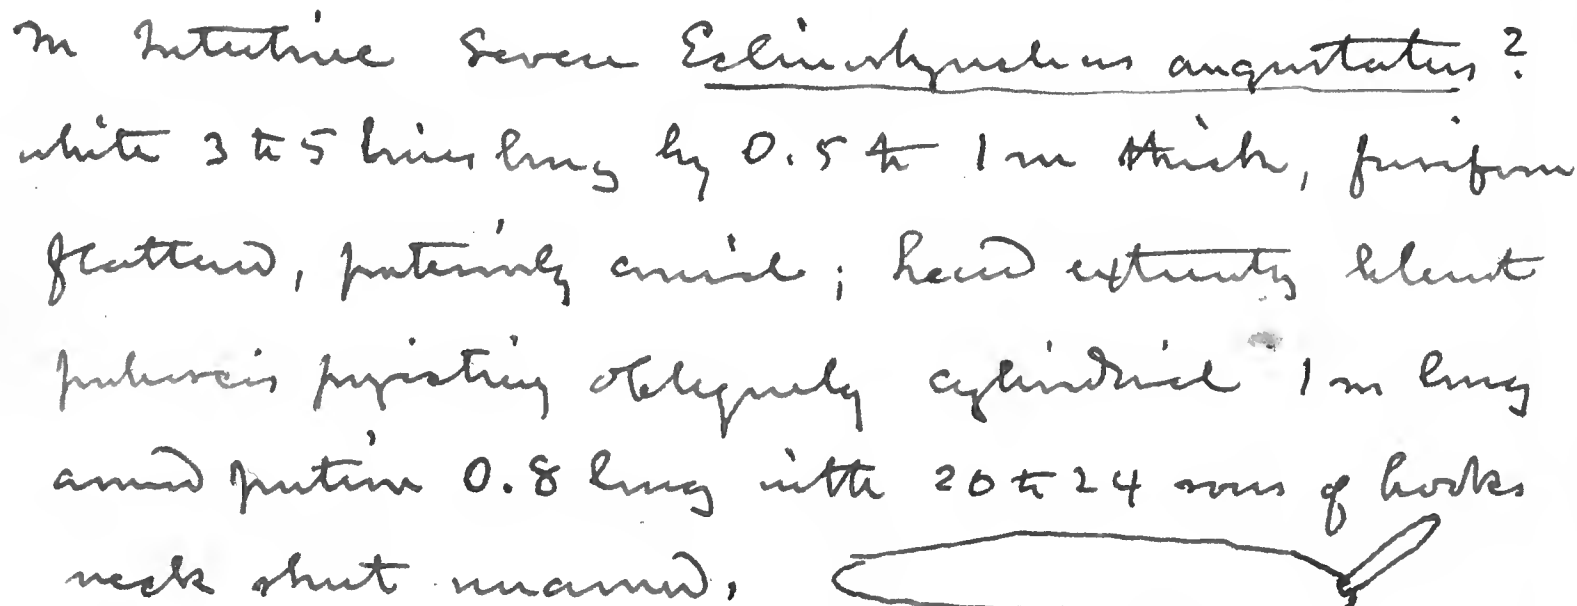 In Intestine Seven Echinorhynchus angustatus?
white 3 to 5 lines long by 0.5 to 1 m thick, fusiform
flattened, posteriorly conical; head extremity blunt
proboscis projecting obliquely cylindrical 1 m long
armed portion 0.8 long with 20 to 24 rows of hooks
neck short unarmed.